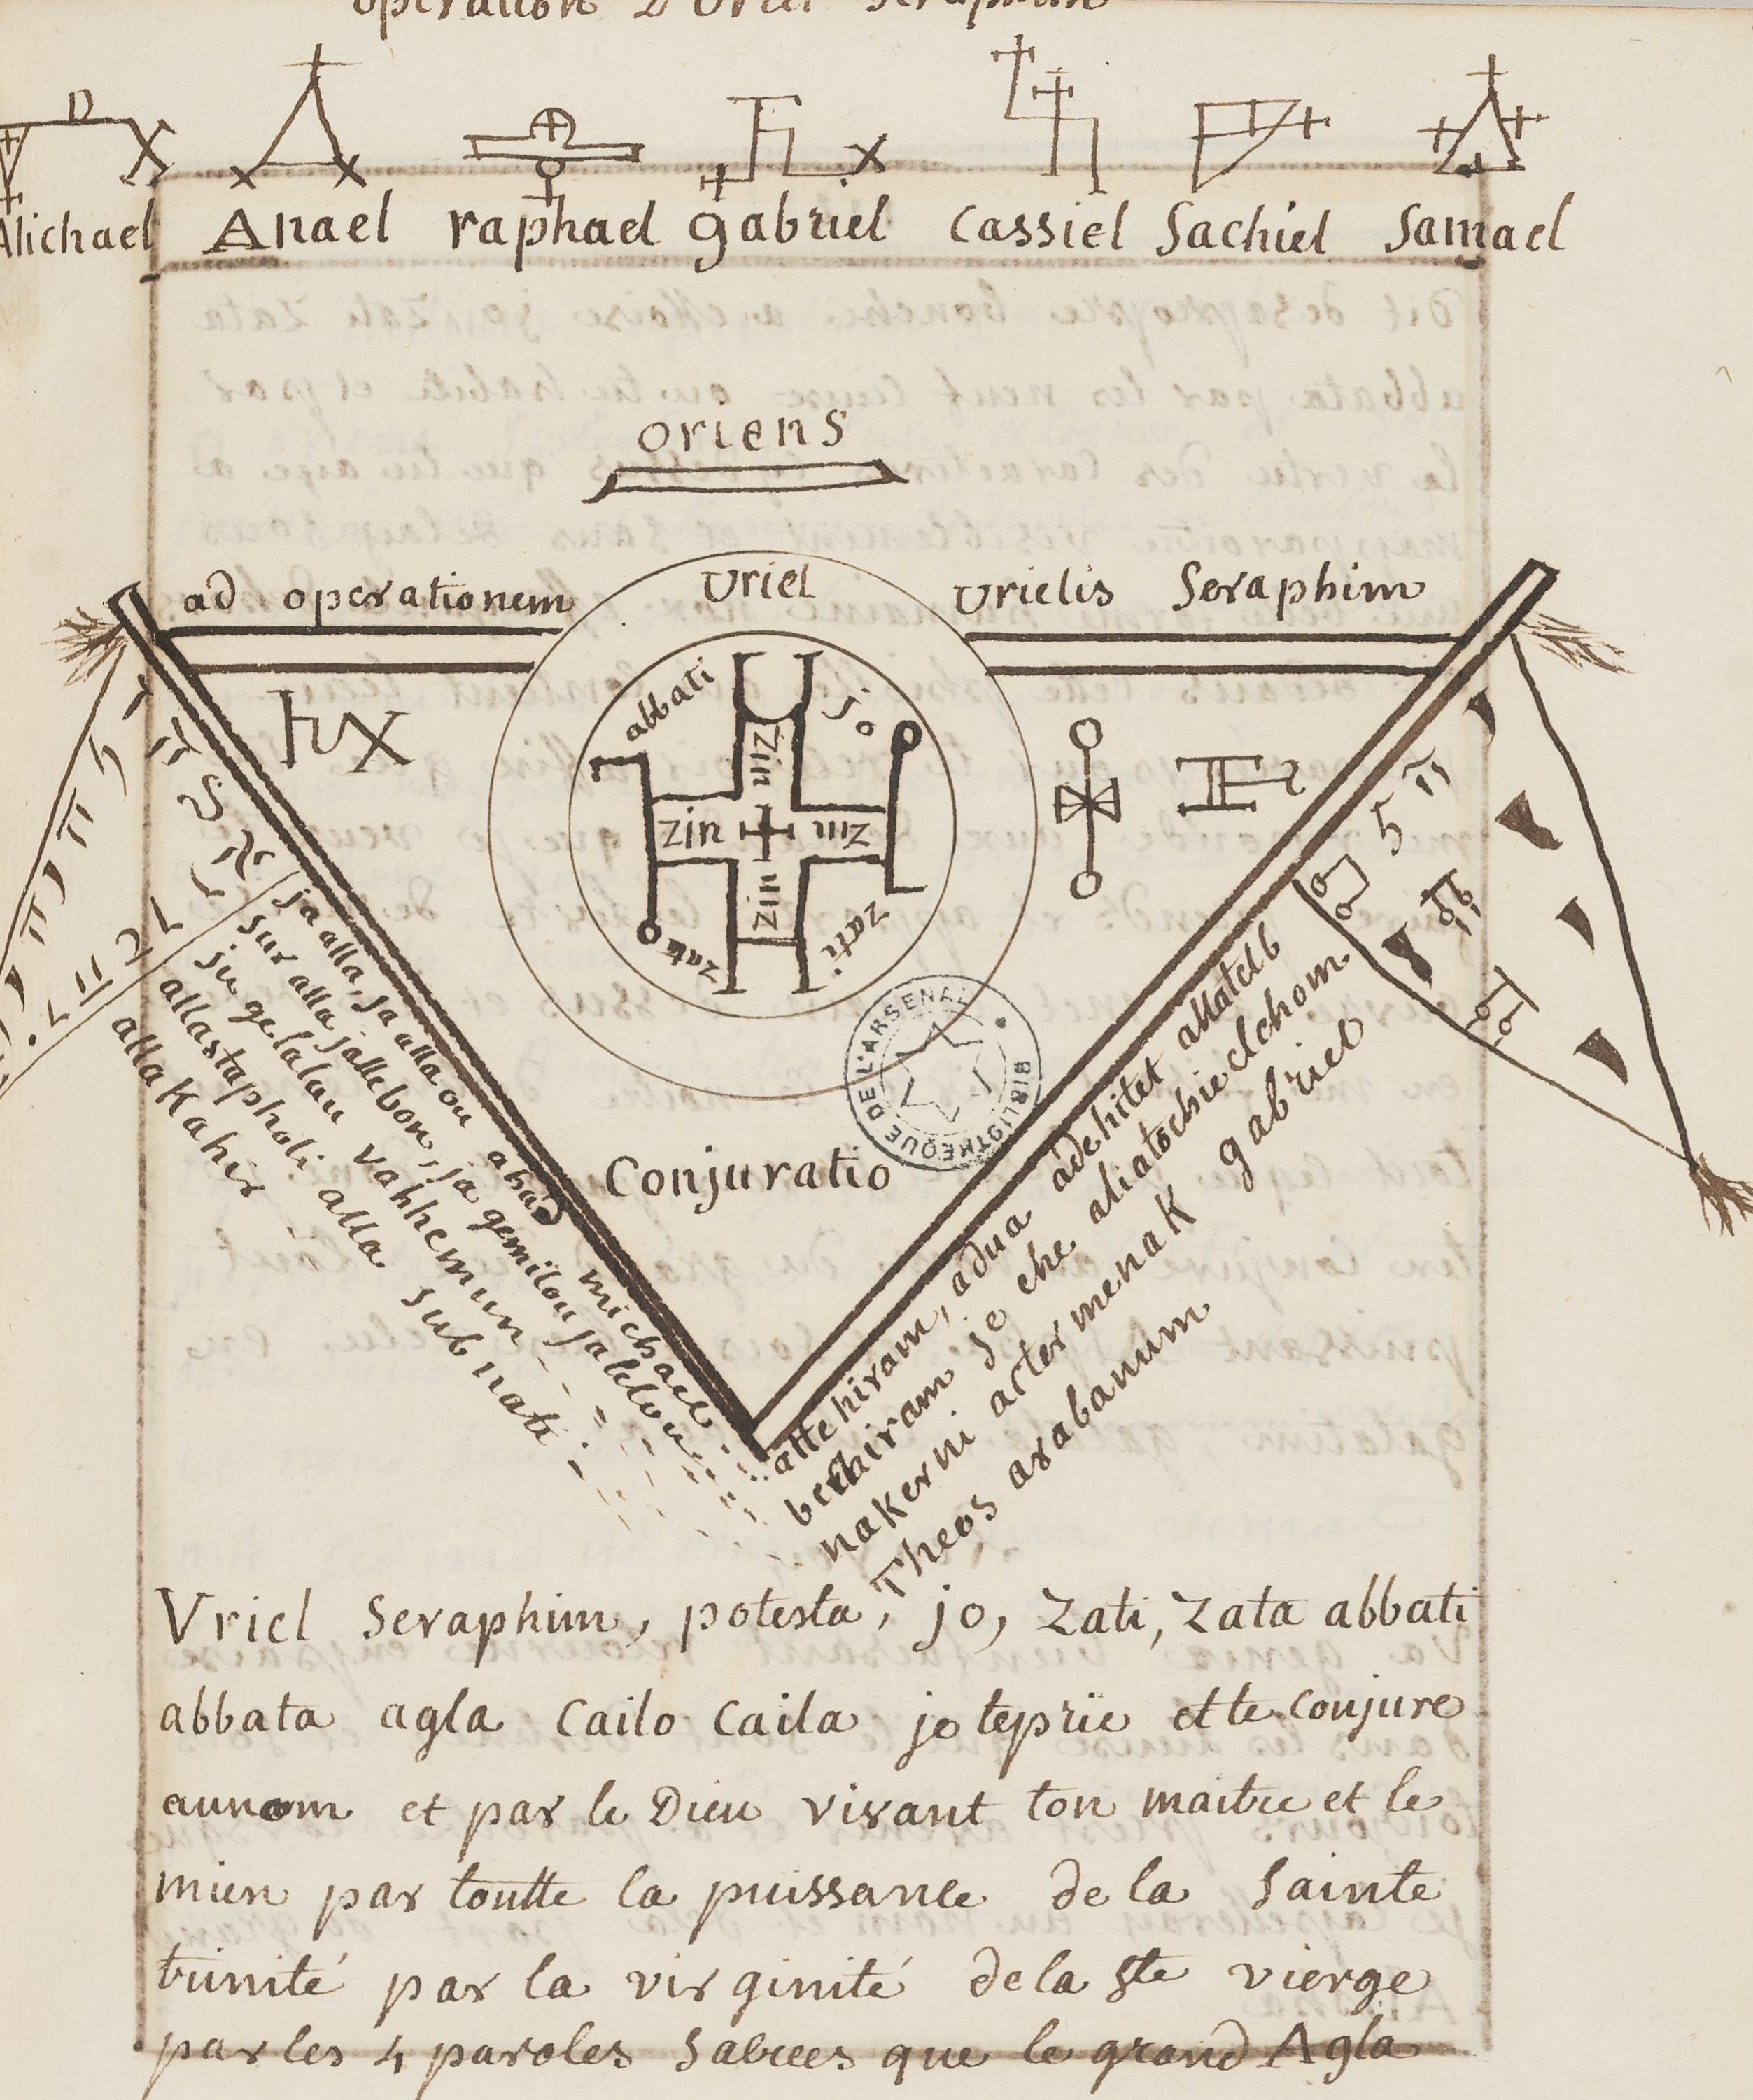 operation D'Uriel Seraphim
D
Michael Anael raphael gabriel Cassiel Sachiel Samael
oriens
ad operationem Uriel Urielis Seraphim
abbati jo
zin
zin zin
zin
zata zati
BIBLIOTHEQUE DE L'ARSENAL
Conjuratio
ja alla, ja alla ou abad michael
sur alla jallebon, ja gemilou jaleloun
ju gelalou vahhemun
allastapholi alla sub nati
alla Kahir
attehiram, adua adehitet allateLb
berhiram je che aliatochielchom
nakerni acter menak gabriel
Theos arabanum
Vriel Seraphim, potesta, jo, Zati, Zata abbati
abbata agla Cailo Caila je teprie et te conjure
aunom et par le Dieu vivant ton maitre et le
mien par toutte la puissance de la Sainte
trinité par la virginité dela Ste vierge
par les 4 paroles Sacrees que le grand Agla